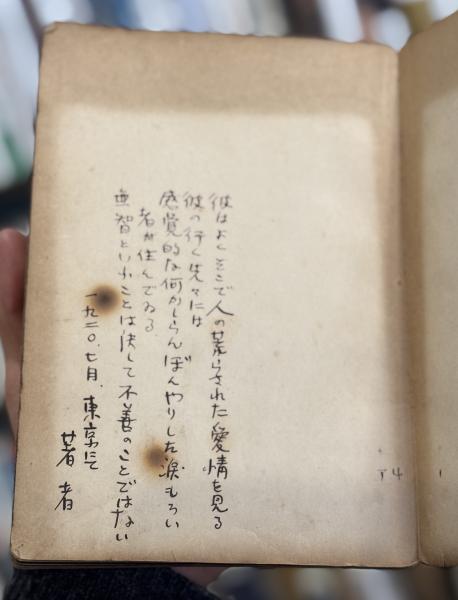 彼はよくそこで人の荒らされた愛情を見る
彼の行く先々には
感覚的な何かしらんぼんやりした涙もろい
者が住んでゐる
無智といふことは決して不善のことではない
一九二〇、七月、東京にて
著者
T4